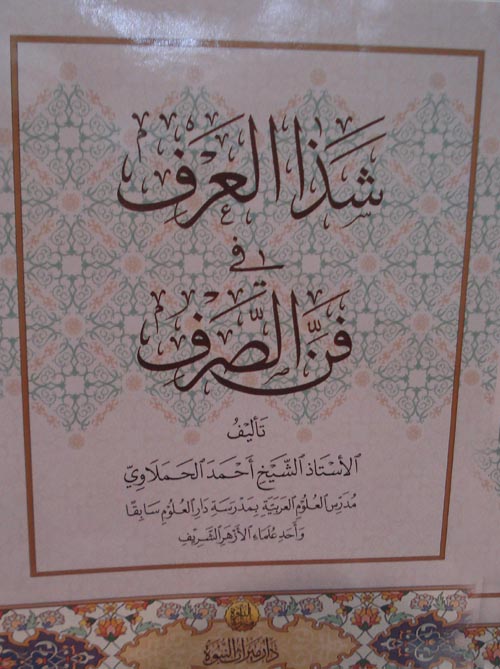 شَذَا الْعَرْفِ
فِي
فَنِّ الصَّرْفِ
تَأْلِيفُ
الأُسْتَاذِ الشَّيْخِ أَحْمَدَ الْحَمَلَاوِيّ
مُدَرِّسِ الْعُلُومِ الْعَرَبِيَّةِ بِمَدْرَسَةِ دَارِ الْعُلُومِ سَابِقًا
وَأَحَدِ عُلَمَاءِ الأَزْهَرِ الشَّرِيفِ